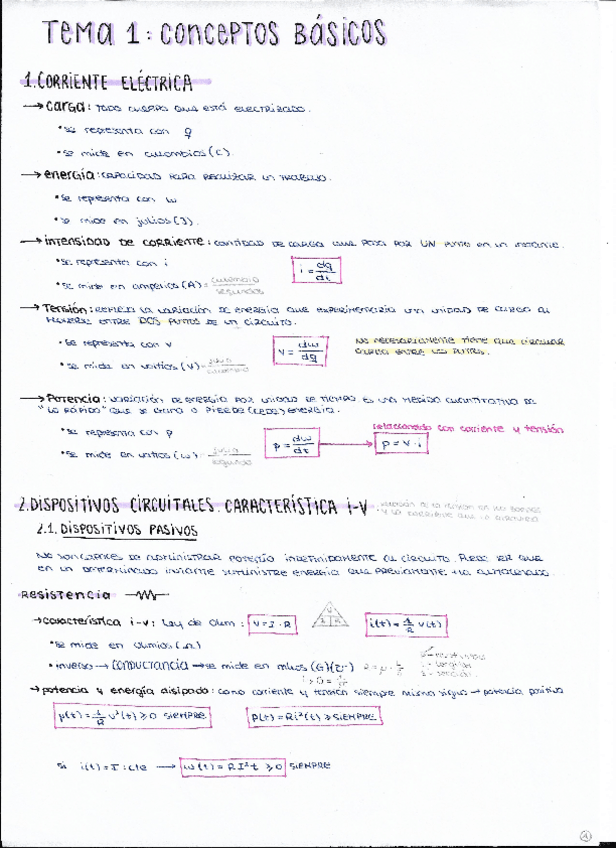 TEMA 1: CONCEPTOS BÁSICOS
1. CORRIENTE ELÉCTRICA
→ carga: TODO CUERPO QUE ESTÁ ELECTRIZADO.
• se representa con q
• se mide en culombios (C).
→ energía: CAPACIDAD PARA REALIZAR UN TRABAJO.
• se representa con w
• se mide en julios (J).
→ intensidad de corriente: CANTIDAD DE CARGA QUE PASA POR UN PUNTO EN UN INSTANTE.
• se representa con i
i = dq/dt
• se mide en amperios (A) = culombio/segundos
→ Tensión: REFLEJA LA VARIACIÓN DE ENERGÍA QUE EXPERIMENTARÍA UN UNIDAD DE CARGA AL
MOVERSE ENTRE DOS PUNTOS DE UN CIRCUITO.
• se representa con v
v = dw/dq
NO NECESARIAMENTE TIENE QUE CIRCULAR
CARGA ENTRE LOS PUNTOS.
• se mide en voltios (V) = julio/culombio
→ Potencia: VARIACIÓN DE ENERGÍA POR UNIDAD DE TIEMPO. ES UNA MEDIDA CUANTITATIVA DE
"LO RÁPIDO" QUE SE GANA O PIERDE (CEDE) ENERGÍA.
relacionado con corriente y tensión
• se representa con p
p = dw/dt → p = v·i
• se mide en vatios (w) = julio/segundo
2. DISPOSITIVOS CIRCUITALES. CARACTERÍSTICA i-V
relación de la tensión en los bornes
y la corriente que lo atraviesa
2.1. DISPOSITIVOS PASIVOS
NO SON CAPACES DE SUMINISTRAR POTENCIA INDEFINIDAMENTE AL CIRCUITO. PUEDE SER QUE
EN UN DETERMINADO INSTANTE SUMINISTRE ENERGÍA QUE PREVIAMENTE HA ALMACENADO.
Resistencia
→ característica i-v: Ley de Ohm: V = I·R
i(t) = 1/R v(t)
• se mide en ohmios (Ω)
• inverso → CONDUCTANCIA → se mide en mhos (G)(℧)
→ potencia y energía disipada: como corriente y tensión siempre mismo signo → potencia positiva
p(t) = 1/R v²(t) ≥ 0 SIEMPRE
P(t) = Ri²(t) ≥ SIEMPRE
si i(t) = I: cte → w(t) = RI²t ≥ 0 SIEMPRE
1